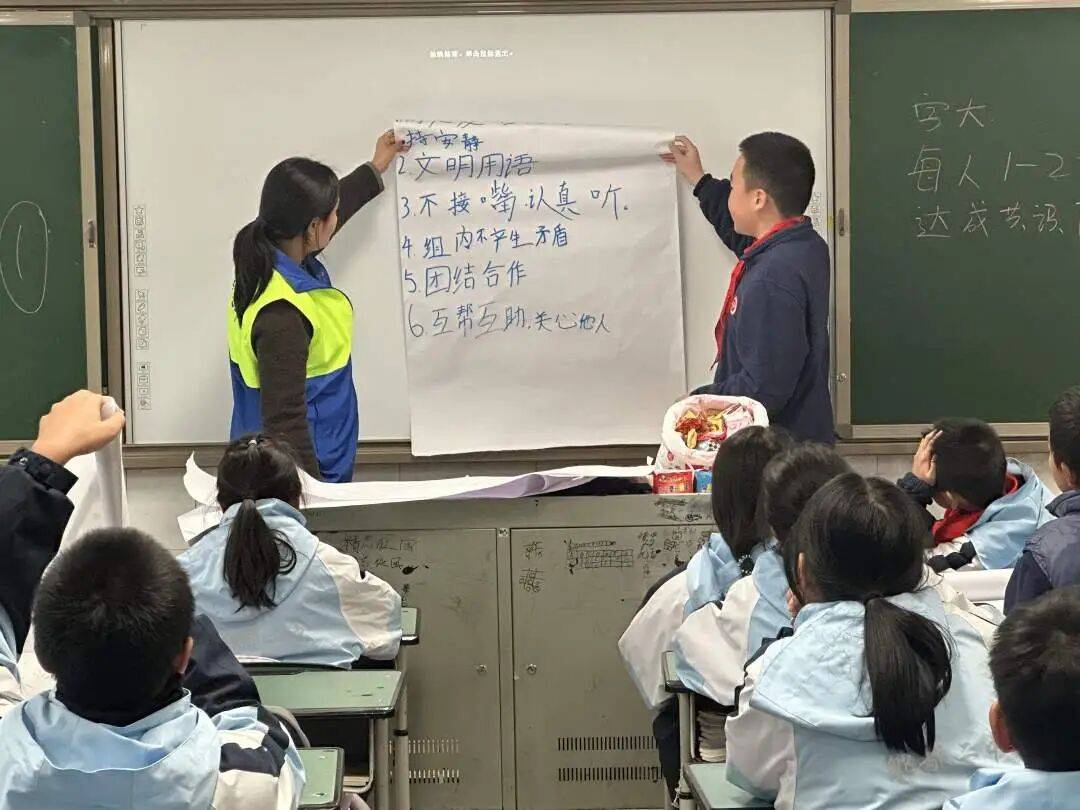 持安静
2.文明用语
3.不接嘴.认真听.
4.组内不产生矛盾
5.团结合作
6.互帮互助.关心他人
字大
每人1-2
达成共识
①